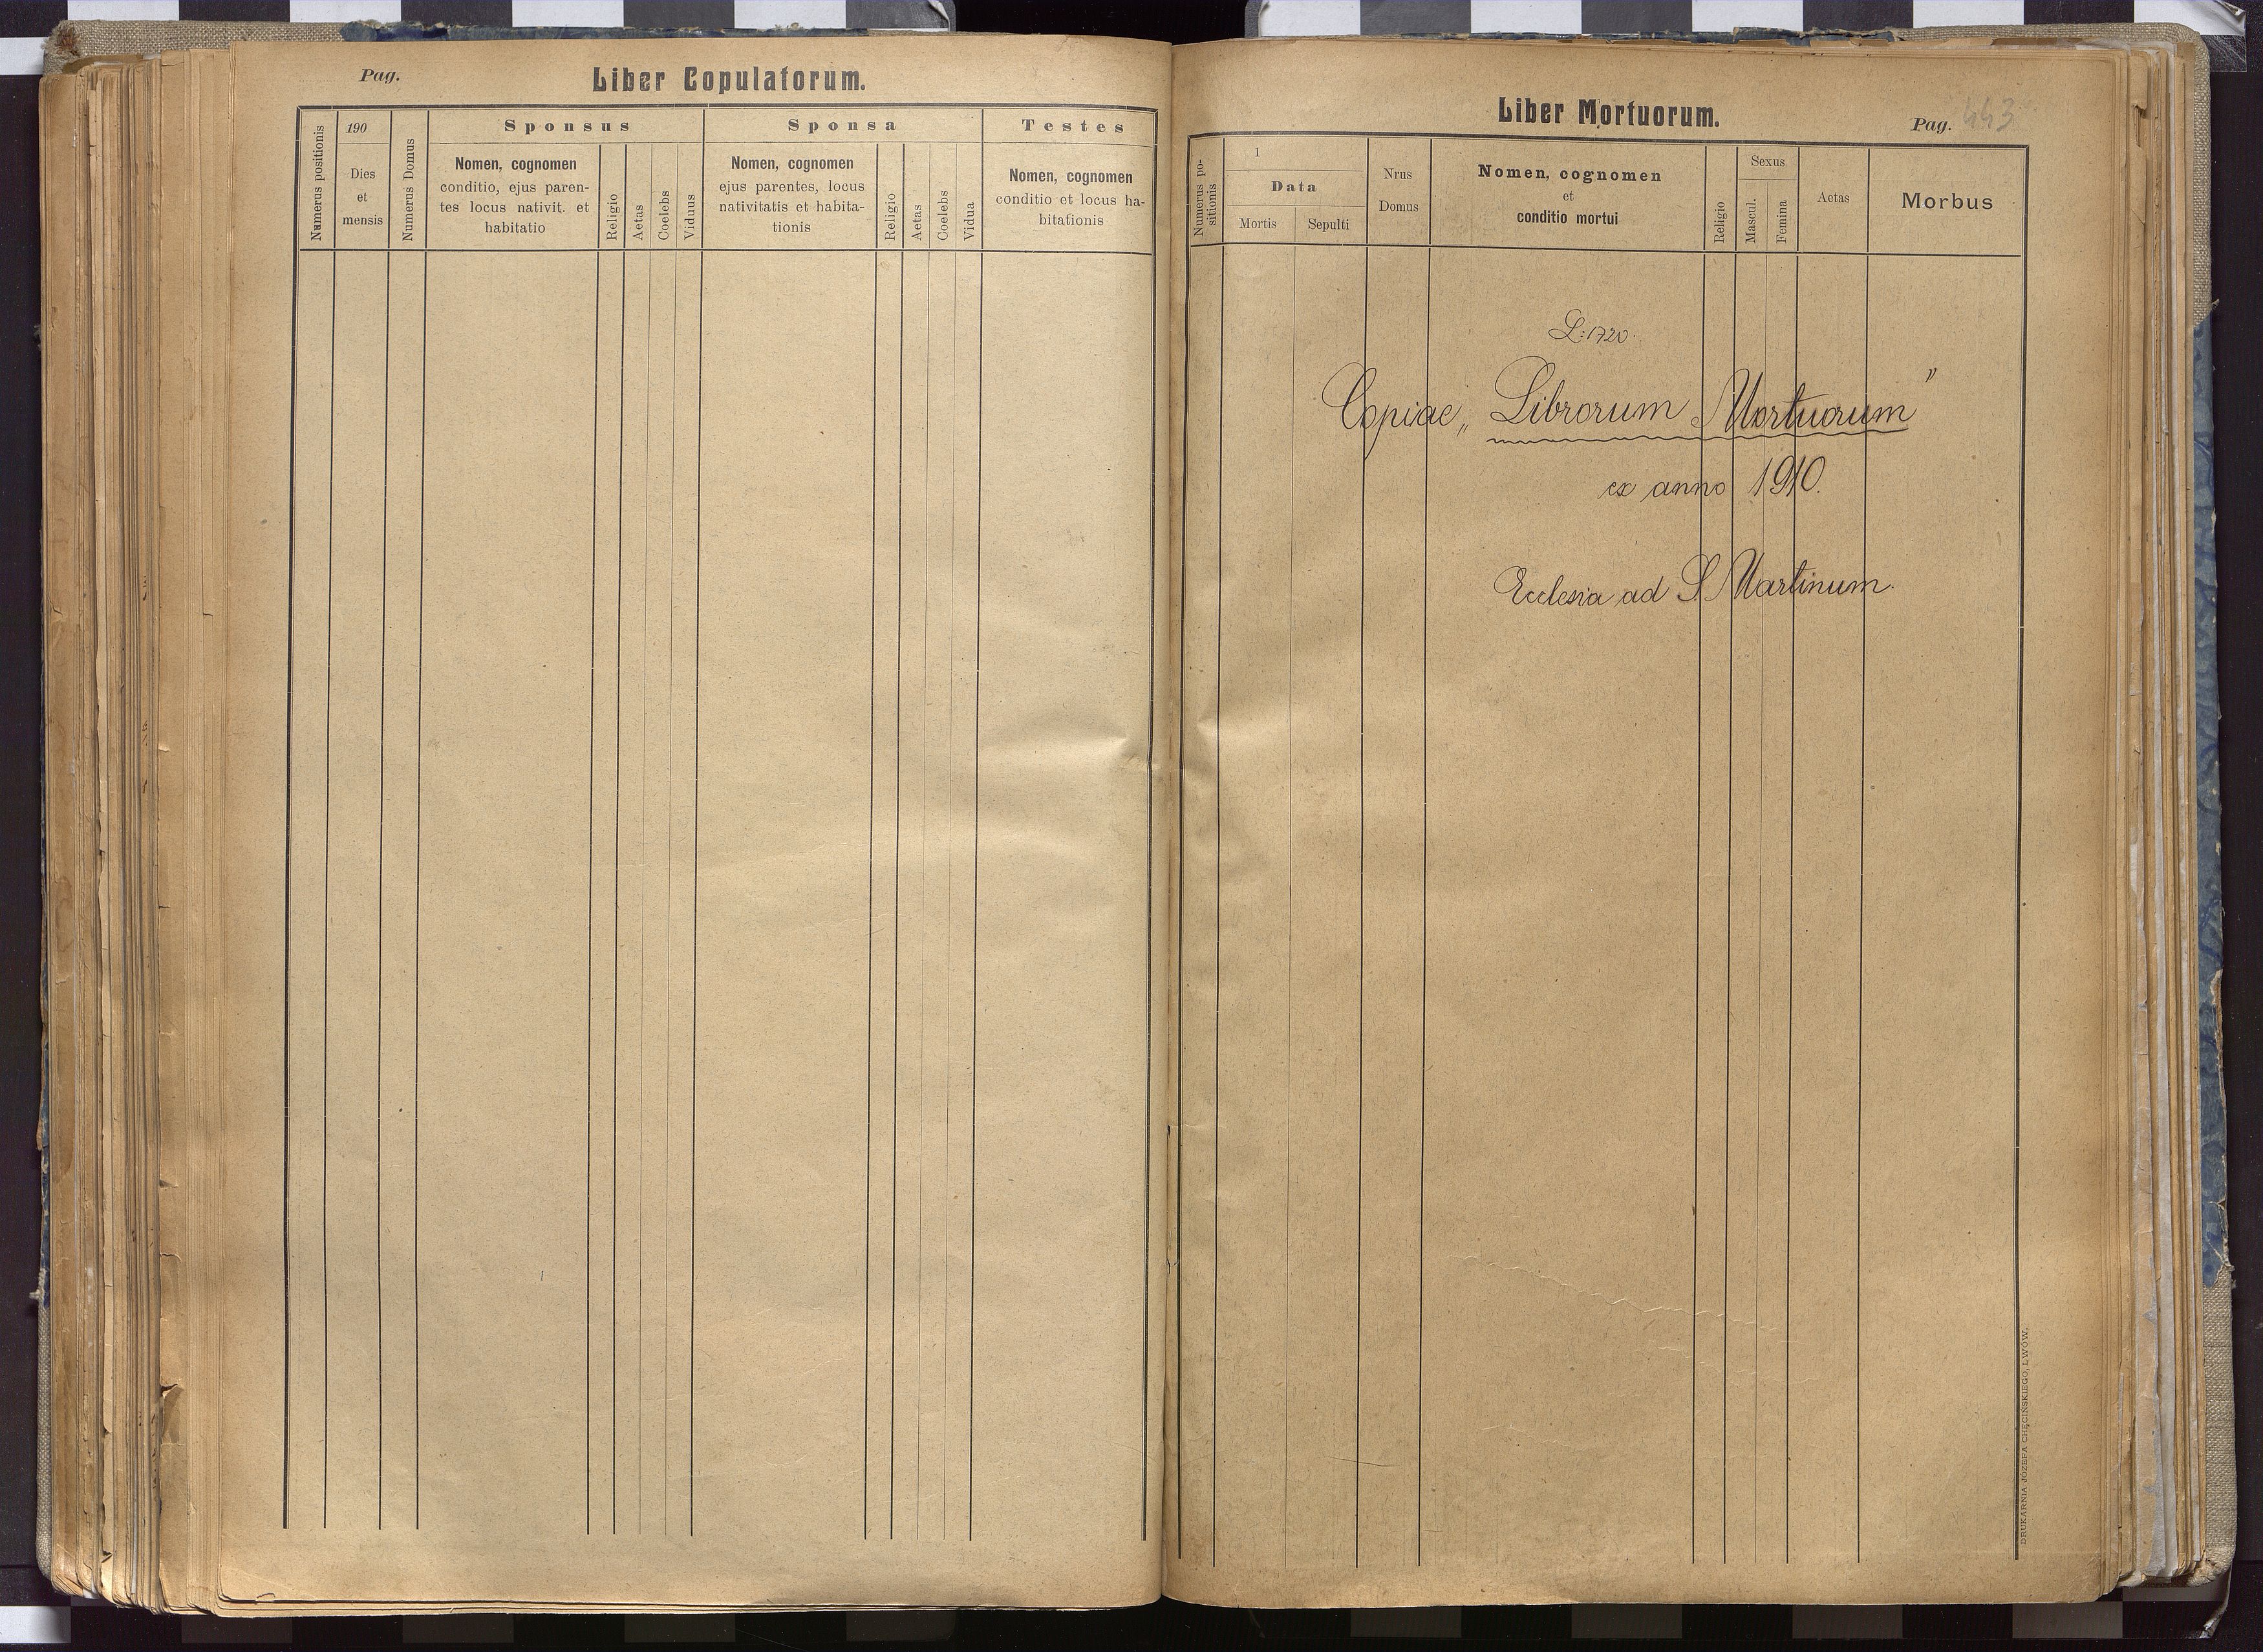 Pag.
Liber Copulatorum.
Numerus positionis
190
Dies
et
mensis
Numerus Domus
Sponsus
Nomen, cognomen
conditio, ejus paren-
tes locus nativit. et
habitatio
Religio
Aetas
Coelebs
Viduus
Sponsa
Nomen, cognomen
ejus parentes, locus
nativitatis et habita-
tionis
Religio
Aetas
Coelebs
Vidua
Testes
Nomen, cognomen
conditio et locus ha-
bitationis
Liber Mortuorum.
Pag. 443
Numerus po-
sitionis
1
Data
Mortis
Sepulti
Nrus
Domus
Nomen, cognomen
et
conditio mortui
Religio
Sexus
Mascul.
Femina
Aetas
Morbus
L: 1720.
Copiae „Librorum Mortuorum"
ex anno 1910.
Ecclesia ad S. Martinum.
DRUKARNIA JÓZEFA CHĘCIŃSKIEGO, LWÓW.